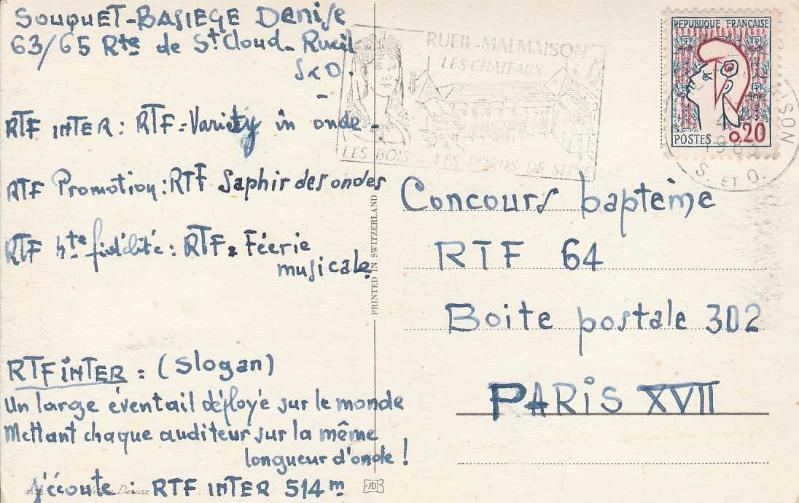 SOUQUET-BASIEGE Denise
63/65 Rte de St Cloud - Rueil
S&O.
RTF INTER : RTF = Variety in onde -
RTF Promotion : RTF Saphir des ondes
RTF hte fidélité : RTF = Féerie
musicale
RTF INTER : (Slogan)
Un large éventail déployé sur le monde
Mettant chaque auditeur sur la même
longueur d'onde !
J'écoute : RTF INTER 514 m
PRINTED IN SWITZERLAND
RUEIL-MALMAISON
LES CHATEAUX
LES BOIS - LES BORDS DE SEINE
REPUBLIQUE FRANÇAISE
POSTES 0,20
S. ET O.
Concours baptême
RTF 64
Boite postale 302
PARIS XVII